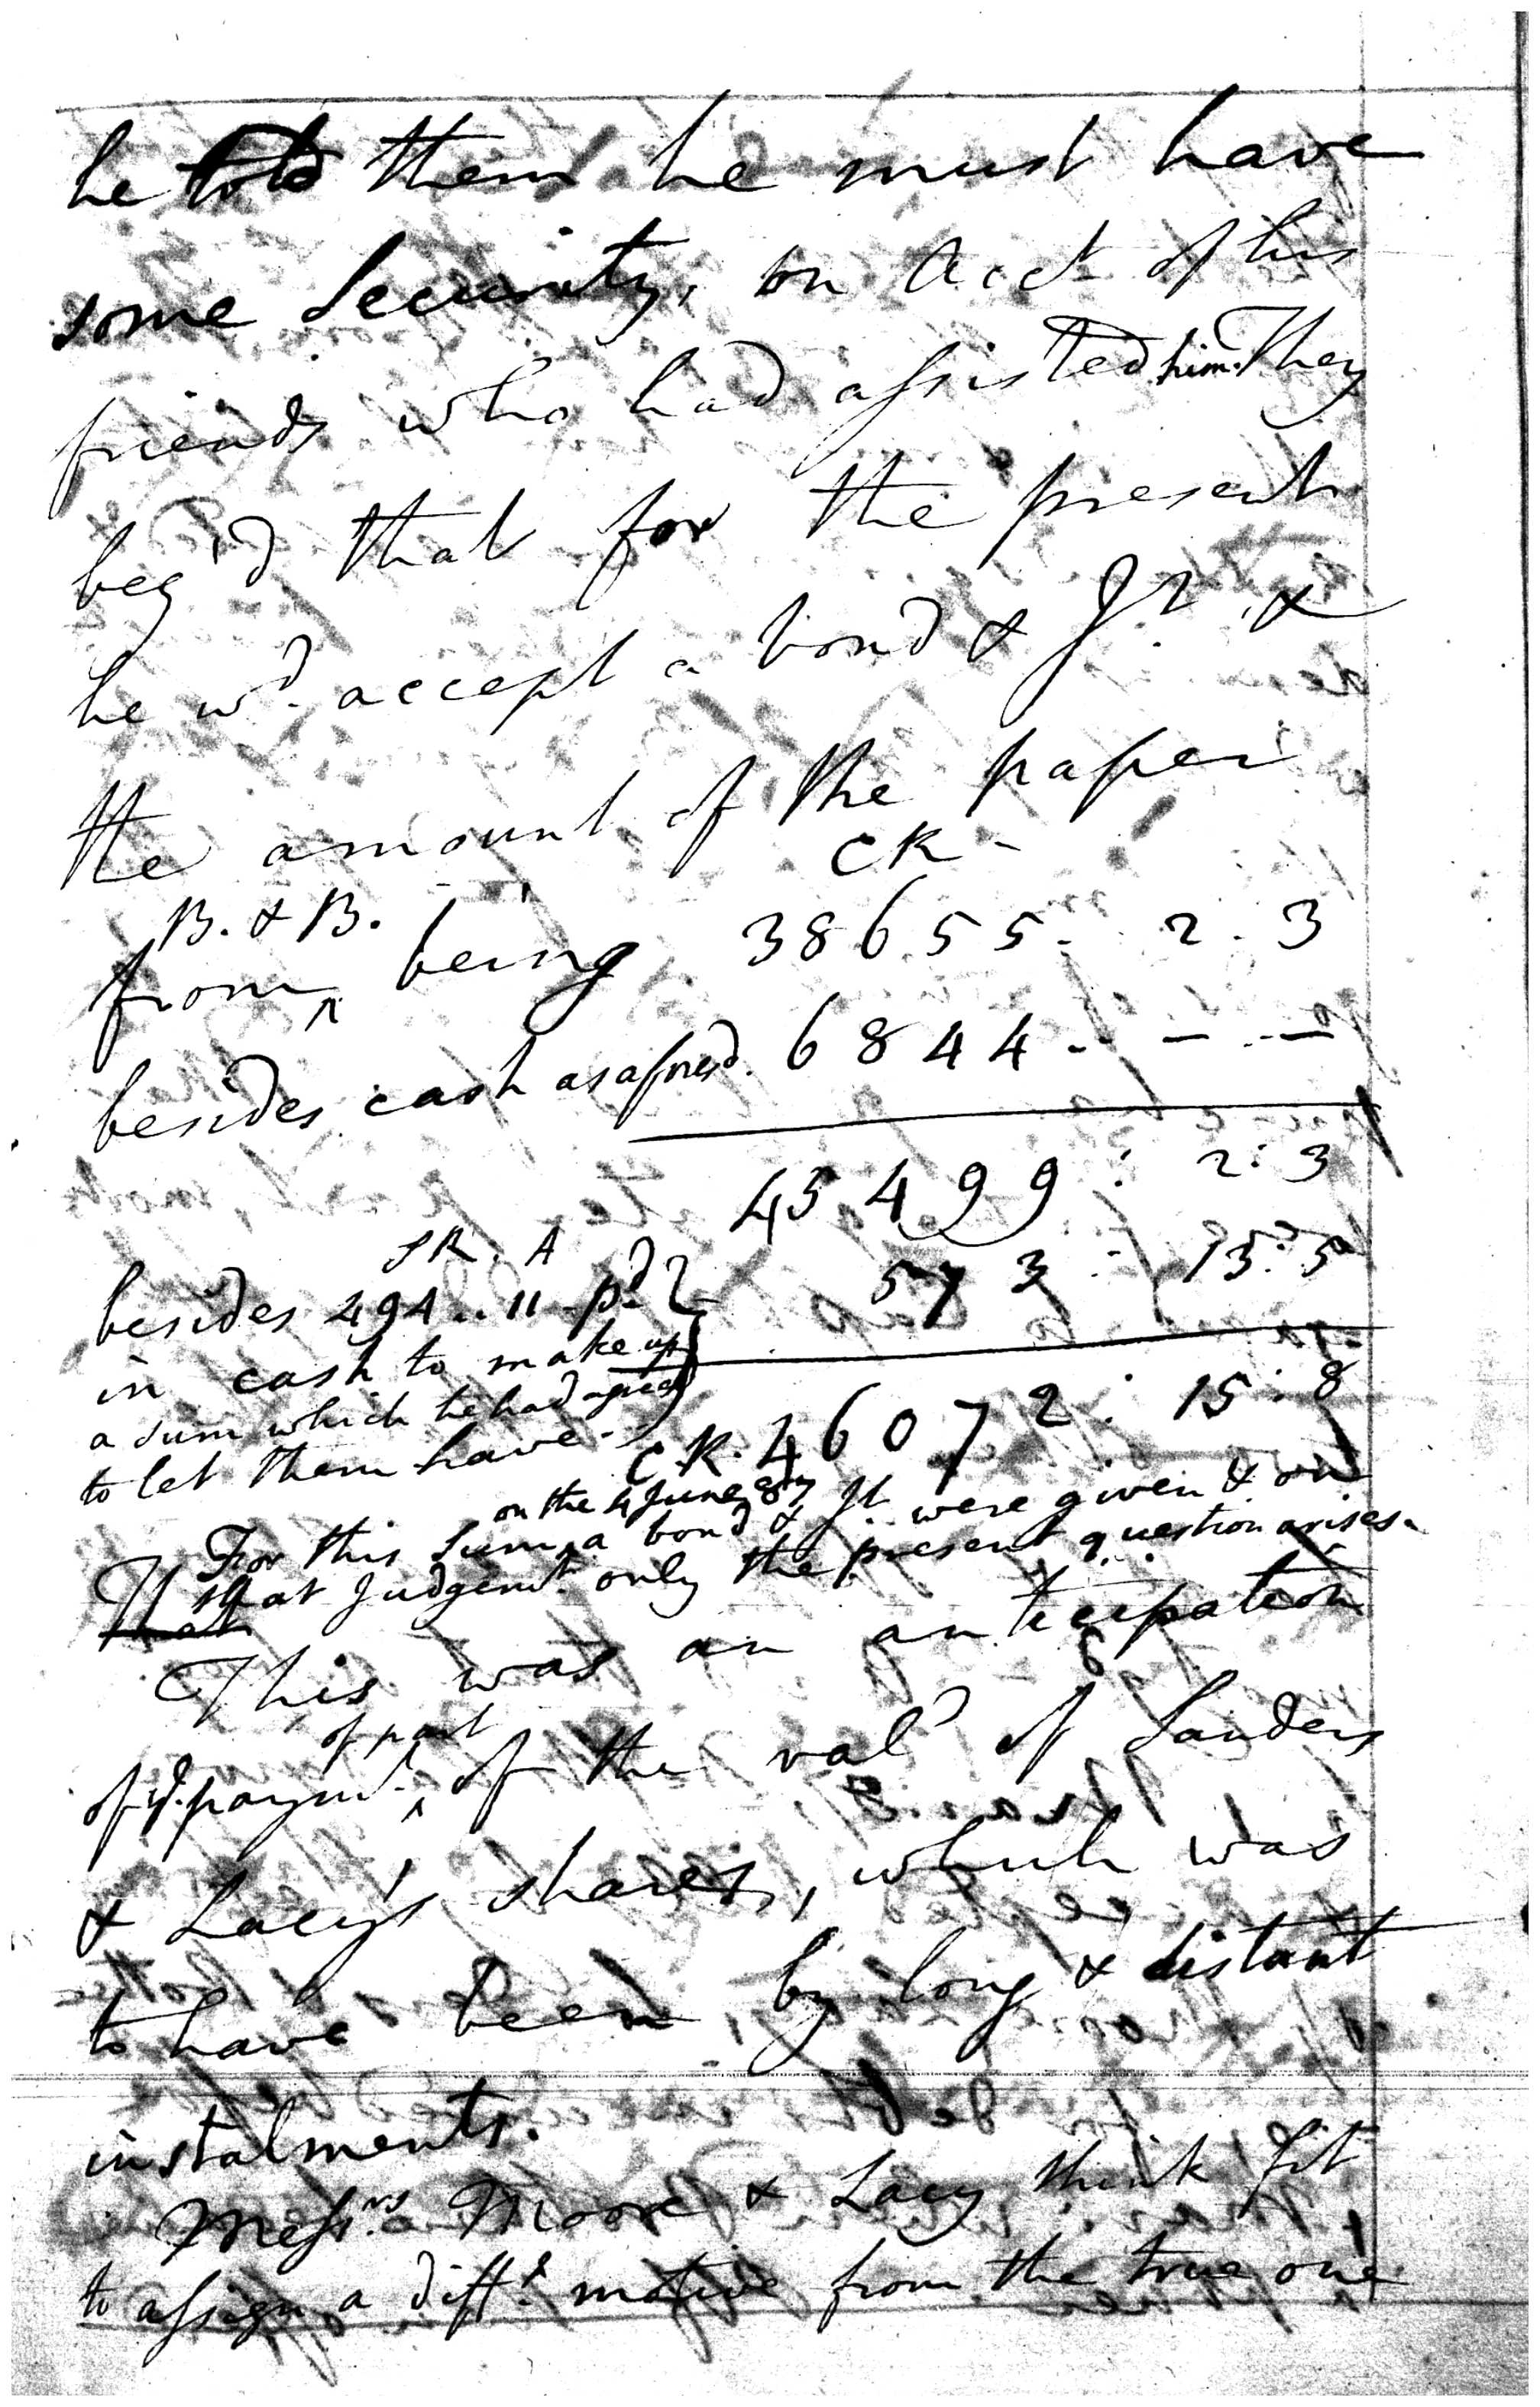 he told them he must have
some Security, on Acct of his
friends who had assisted him. They
beg'd that for the present
he wd. accept a bond & Jt. &
the amount of the paper
CR -
B. & B.
from ^ being 38655. 2. 3
besides cash as aforesd. 6844.. — . —
45499: 2: 3
SR. A
besides 494..11 pd. } 573: 13: 5
in cash to make up
a sum which he had agreed
to let them have. -
C.R. 46072: 15: 8
on the 4 June 87
For this Sum ^ a bond & Jt. were given & on
that Judgemt. only the present question arises.
That
This was an anticipation
of part
of ye. paymt. ^ of the val^d of Sanders
& Lacy's shares, which was
to have been by long & distant
instalments.
Messrs. Moore & Lacy think fit
to assign a difft. motive from the true one